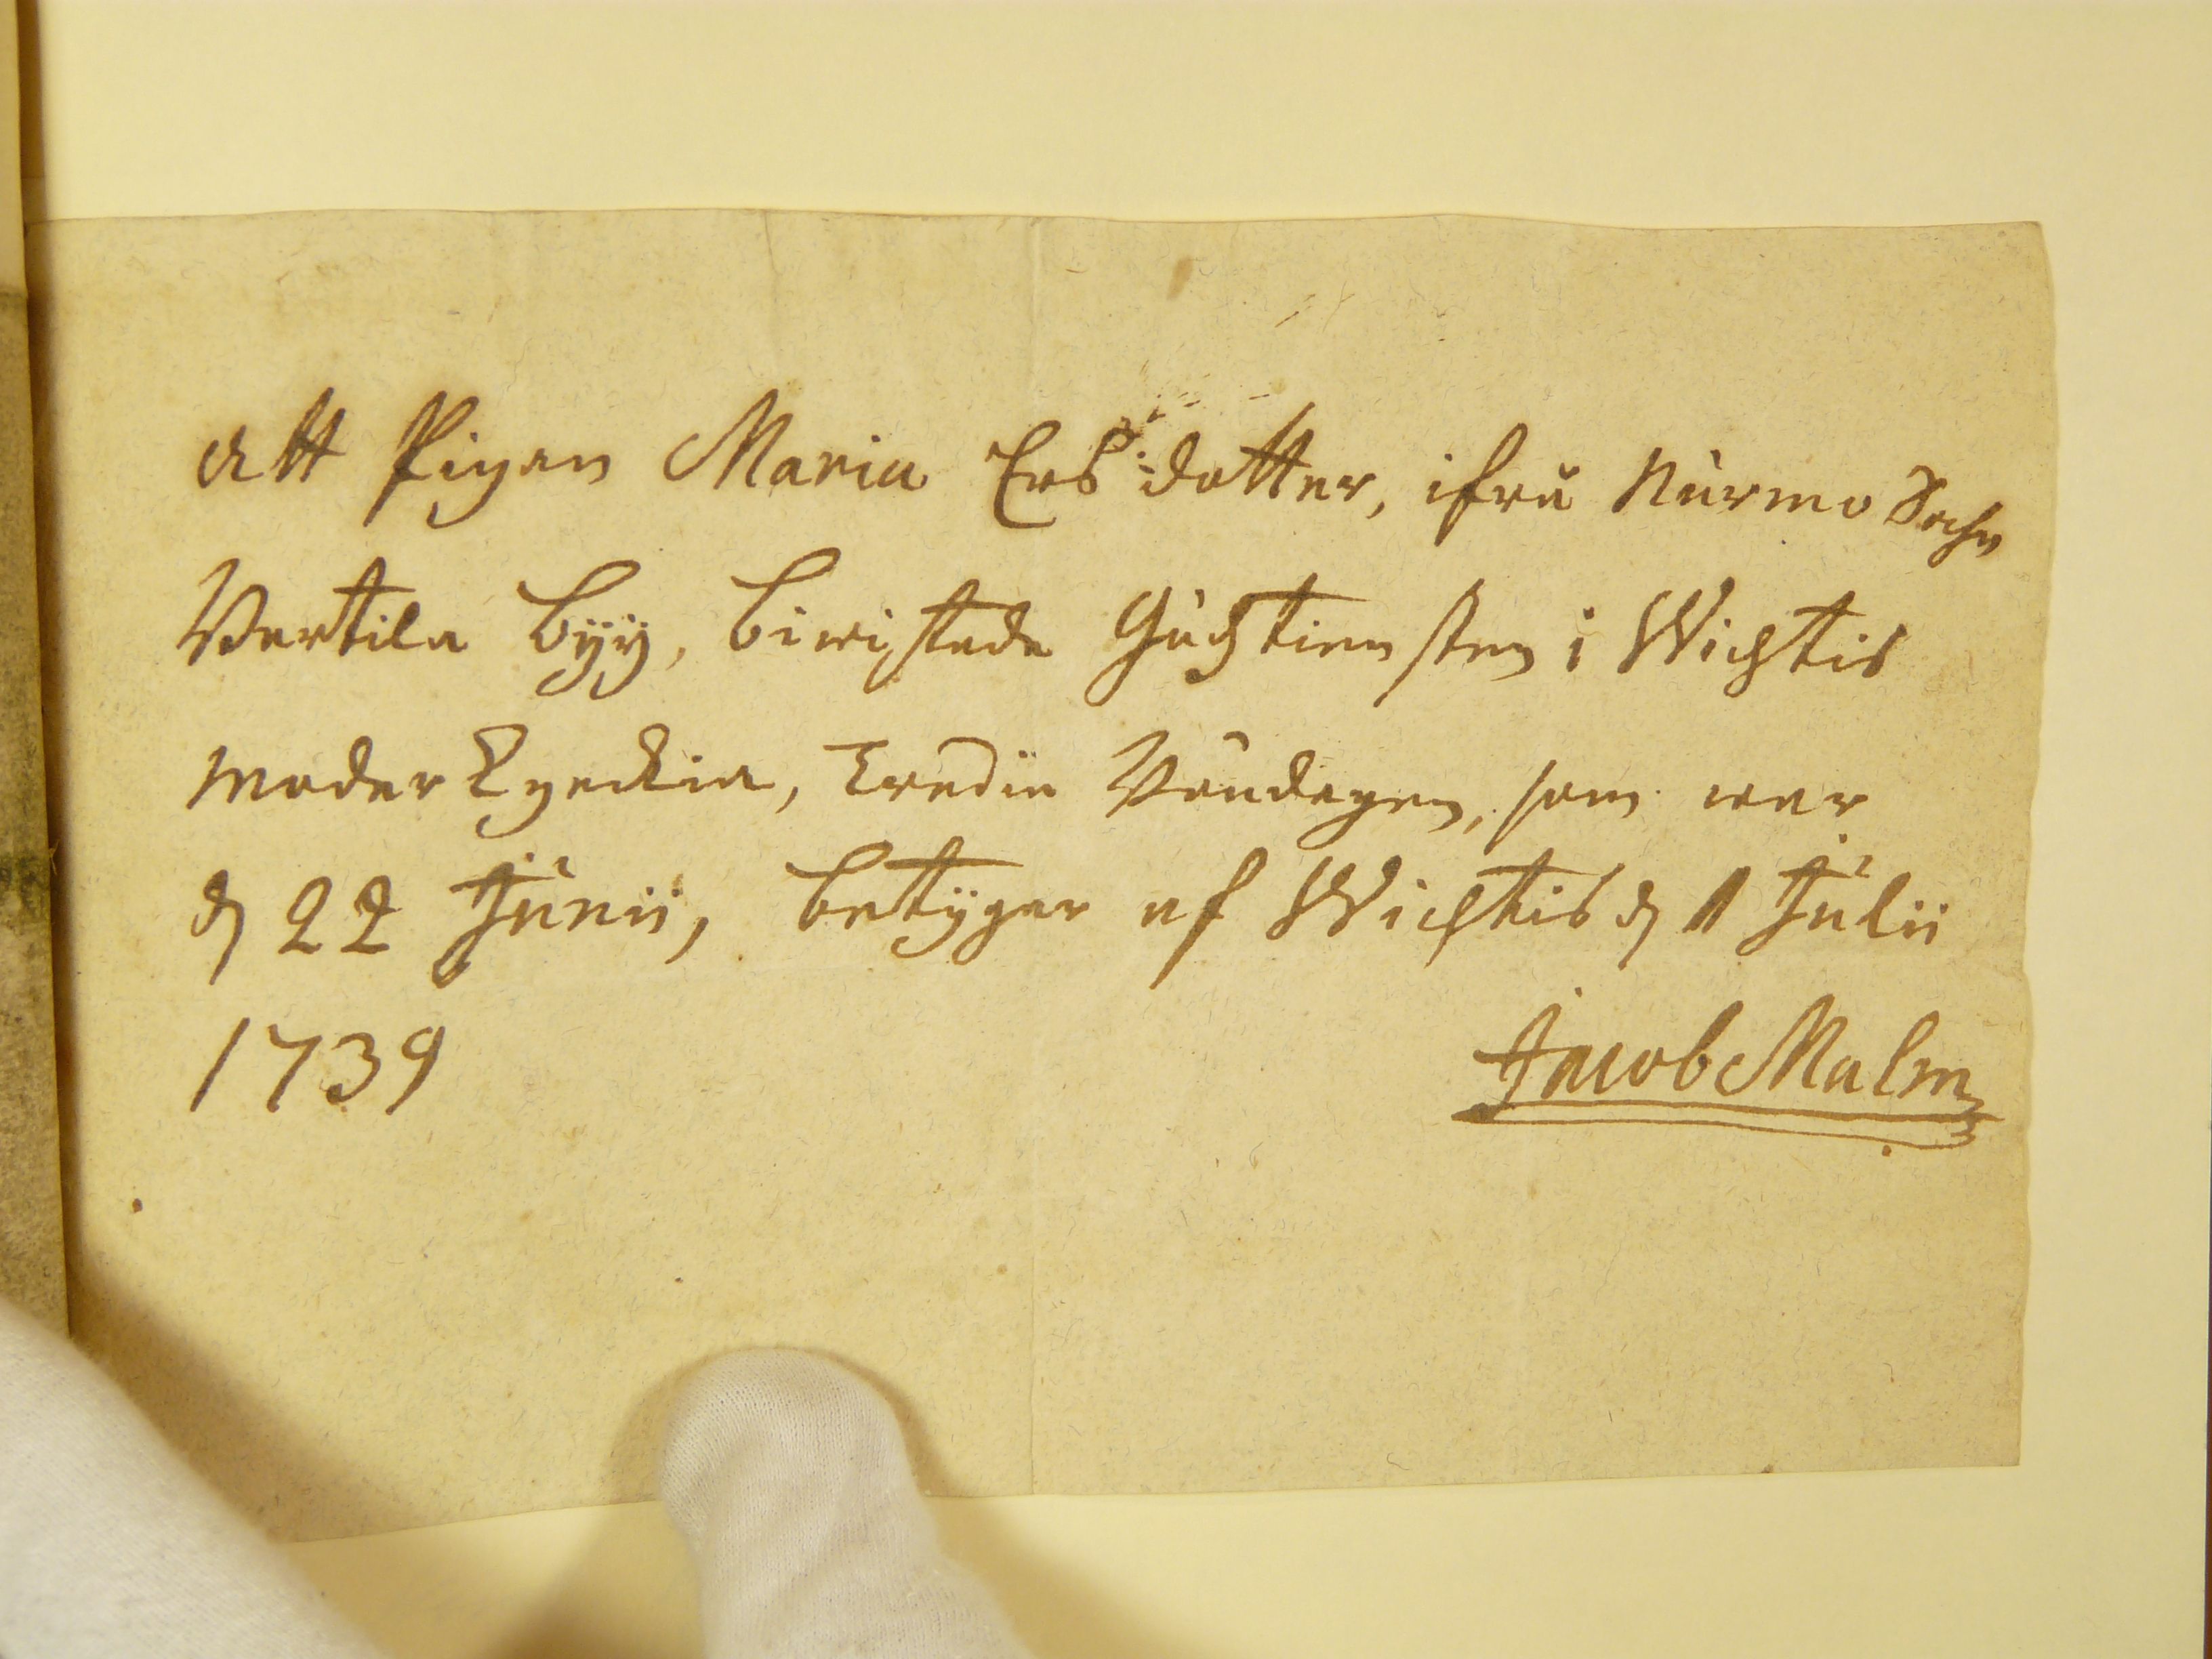 Att Pigan Maria Ersdotter, ifrå Nurmo Sochn
Vertila byÿ, biwistade Gudstiensten i Wichtis
moder Kyrckia, Tredie Söndagen, som war
d. 22 Junii, betÿgar af Wichtis d. 1 Julii
1739
Jacob Malm